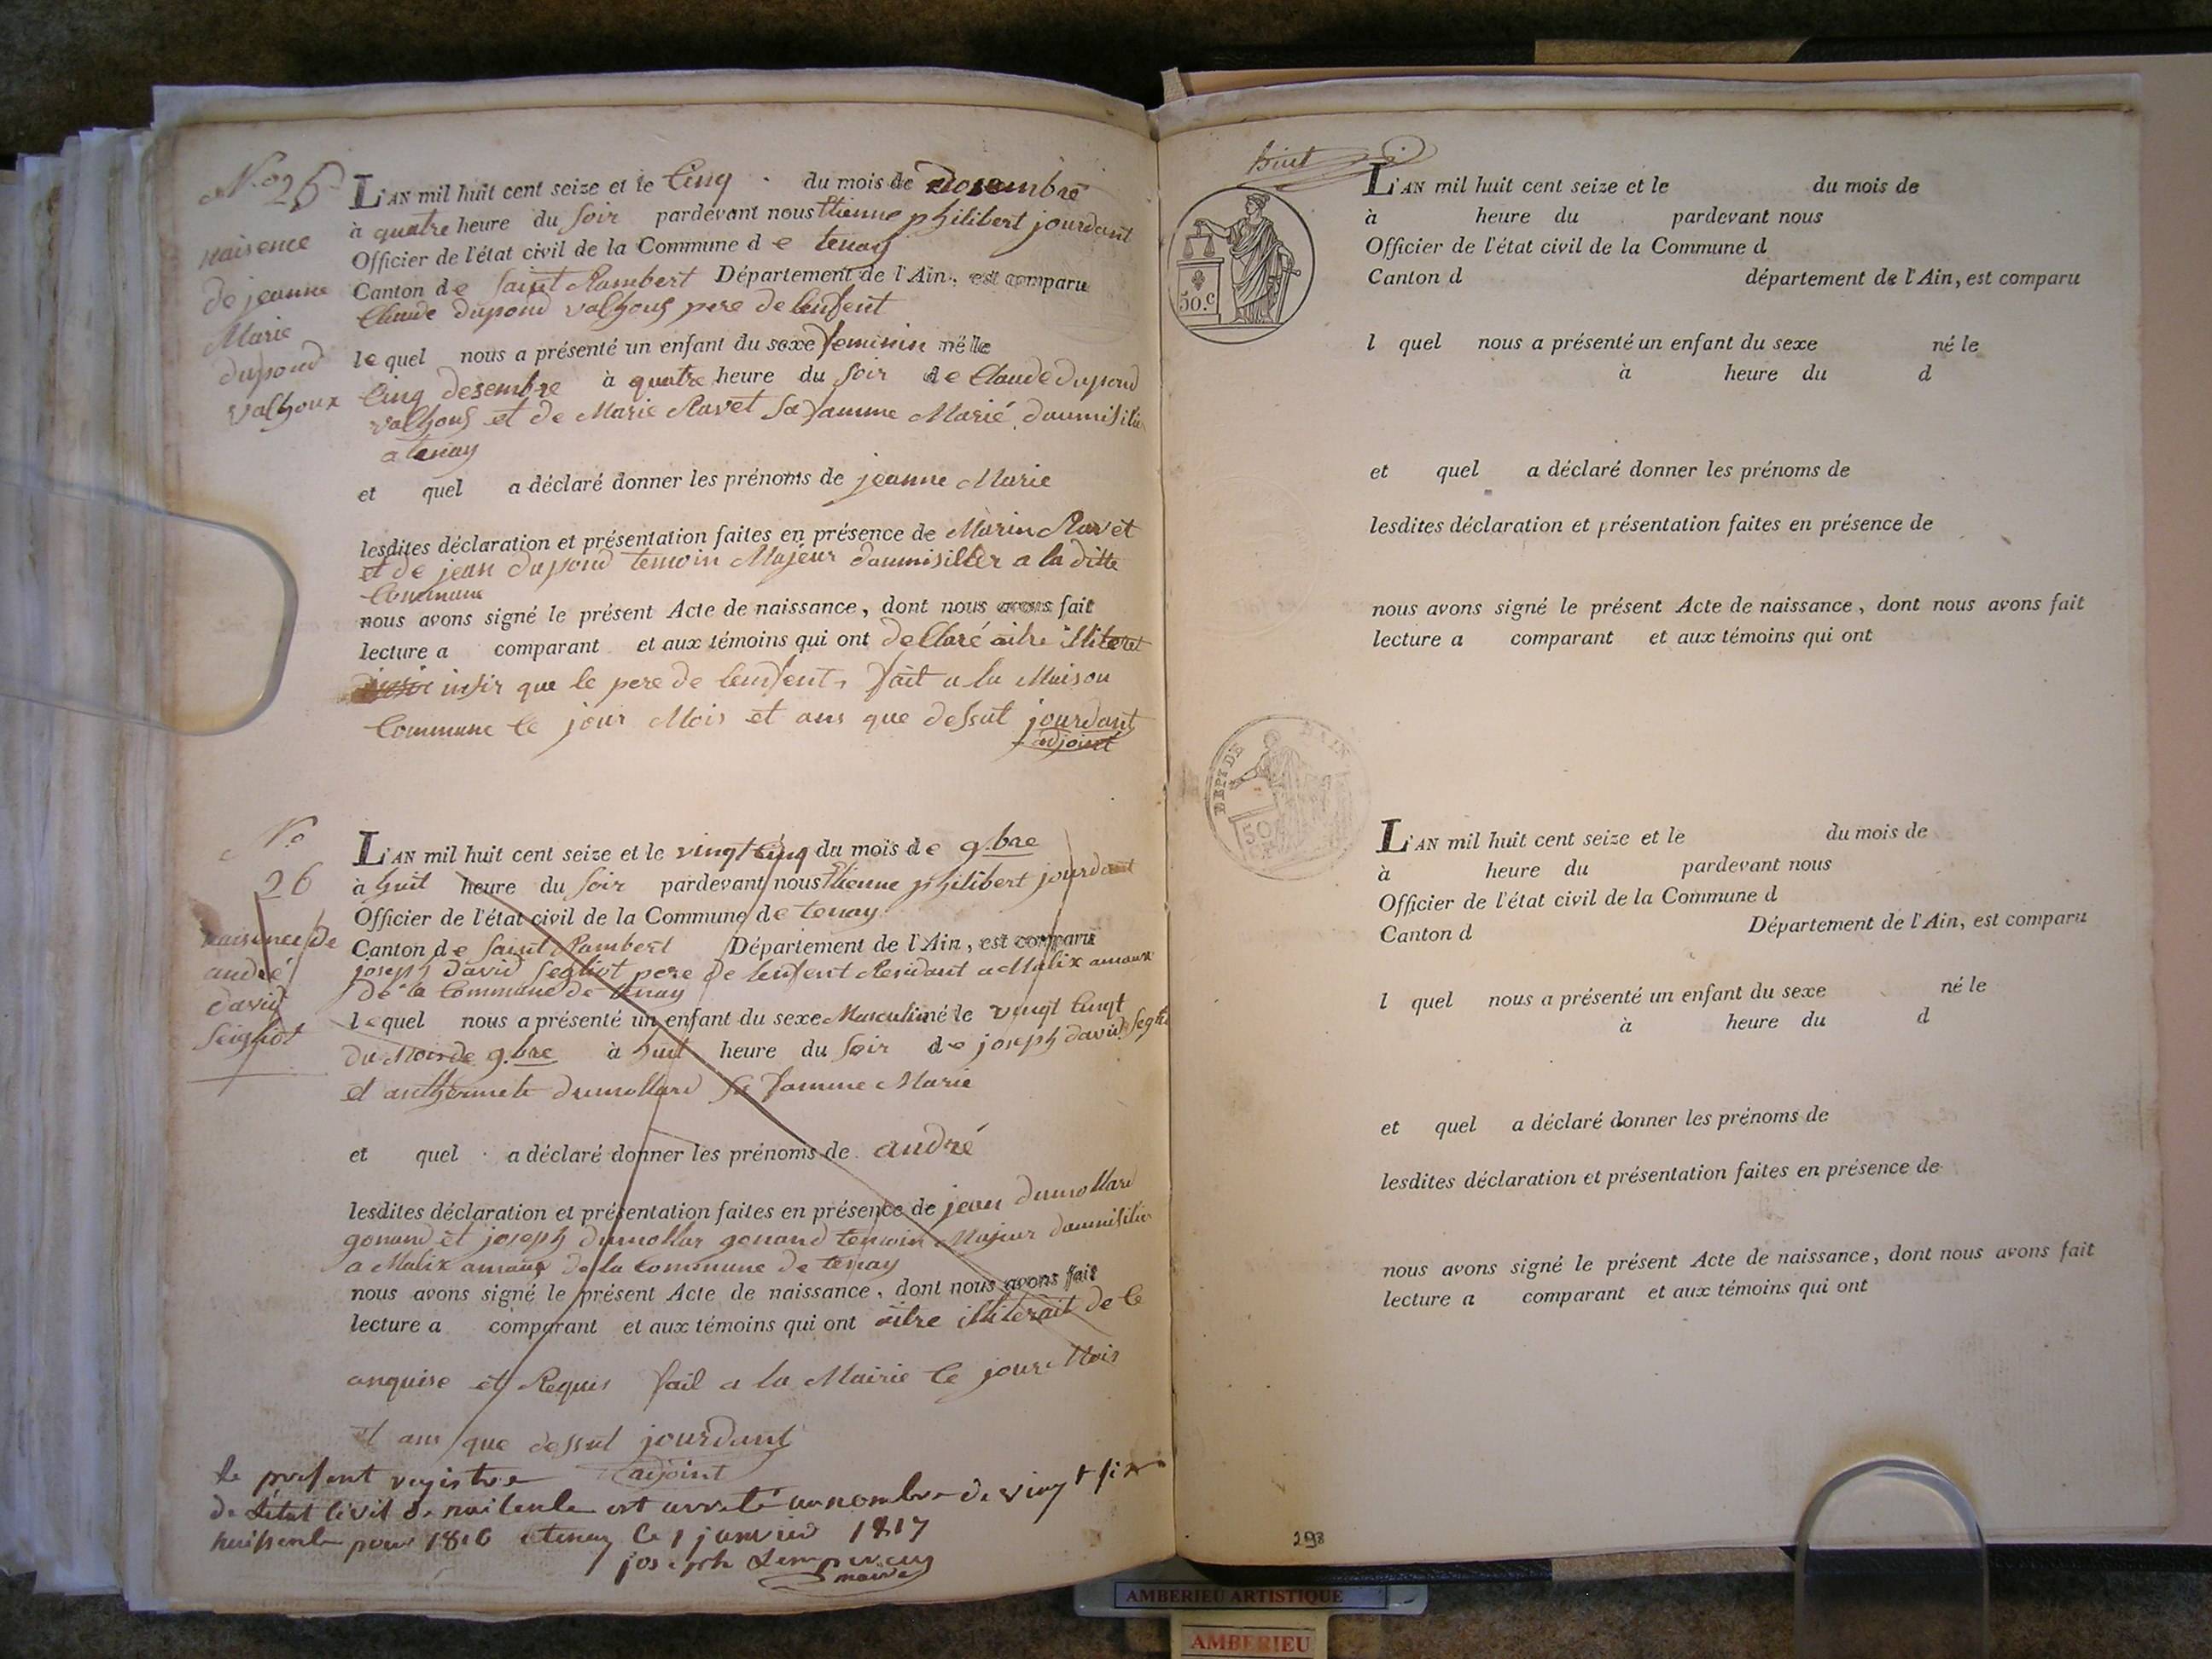 N.o 25
naisence
de jeanne
Marie
dupond
valhoux
L'AN mil huit cent seize et le Cinq du mois de desembre
à quatre heure du soir pardevant nous Etienne philibert jourdant
Officier de l'état civil de la Commune de tenay
Canton de Saint Rambert Département de l'Ain, est comparu
Claude dupond valhous pere de lenfent
lequel nous a présenté un enfant du sexe feminin né le
Cinq desembre à quatre heure du soir de Claude dupond
valhous et de Marie Ravet sa famme Marié daumisilie
a tenay
et quel a déclaré donner les prénoms de jeanne Marie
lesdites déclaration et présentation faites en présence de Marin Ravet
et de jean dupond temoin Majeur daumisillier a la ditte
Commune
nous avons signé le présent Acte de naissance, dont nous avons fait
lecture a comparant et aux témoins qui ont déllaré aitre illiteret
insir que le pere de lenfent fait a la Maison
Commune le jour Mois et ans que dessut jourdant
adjoint
N.o
26
naisence de
andré
david
Seigliot
L'AN mil huit cent seize et le vingt Cinq du mois de 9.bre
à huit heure du soir pardevant nous Etienne philibert jourdant
Officier de l'état civil de la Commune de tenay
Canton de Saint Rambert Département de l'Ain, est comparu
joseph david Segliot pere de lenfent Residant a Malix amaux
de la Commune de tenay
lequel nous a présenté un enfant du sexe Masculin né le vingt Cinqt
du Mois de 9.bre à huit heure du soir de joseph david Segli
et anthermete dumollard sa famme Marié
et quel a déclaré donner les prénoms de andré
lesdites déclaration et présentation faites en présence de jean dumollard
gonand et joseph dumollar gonand temoin Majeur daumisilier
a Malix amaux de la Commune de tenay
nous avons signé le présent Acte de naissance, dont nous avons fait
lecture a comparant et aux témoins qui ont aitre illiterait de Ce
anquise et Requis fait a la Mairie le jour Mois
et ans que dessut jourdant
adjoint
le present registre
de Létat Civil de naisence est arreté au nombre de vingt six
naissence pour 1816 a tenay le 1 janvier 1817
joseph
maire
huit
50.c
L'AN mil huit cent seize et le du mois de
à heure du pardevant nous
Officier de l'état civil de la Commune d
Canton d département de l'Ain, est comparu
l quel nous a présenté un enfant du sexe né le
à heure du d
et quel a déclaré donner les prénoms de
lesdites déclaration et présentation faites en présence de
nous avons signé le présent Acte de naissance, dont nous avons fait
lecture a comparant et aux témoins qui ont
DEPT DE L'AIN
50
L'AN mil huit cent seize et le du mois de
à heure du pardevant nous
Officier de l'état civil de la Commune d
Canton d Département de l'Ain, est comparu
l quel nous a présenté un enfant du sexe né le
à heure du d
et quel a déclaré donner les prénoms de
lesdites déclaration et présentation faites en présence de
nous avons signé le présent Acte de naissance, dont nous avons fait
lecture a comparant et aux témoins qui ont
298
AMBERIEU ARTISTIQUE
AMBERIEU